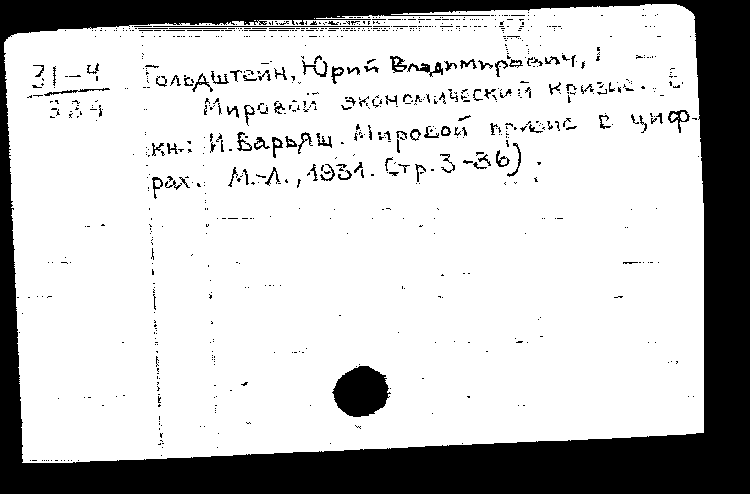 31-4
334
Гольдштейн, Юрий Владимирович,
Мировой экономический кризис. В
кн.: И. Варьяш. Мировой кризис в циф-
рах. М.-Л., 1931. Стр. 3-36).